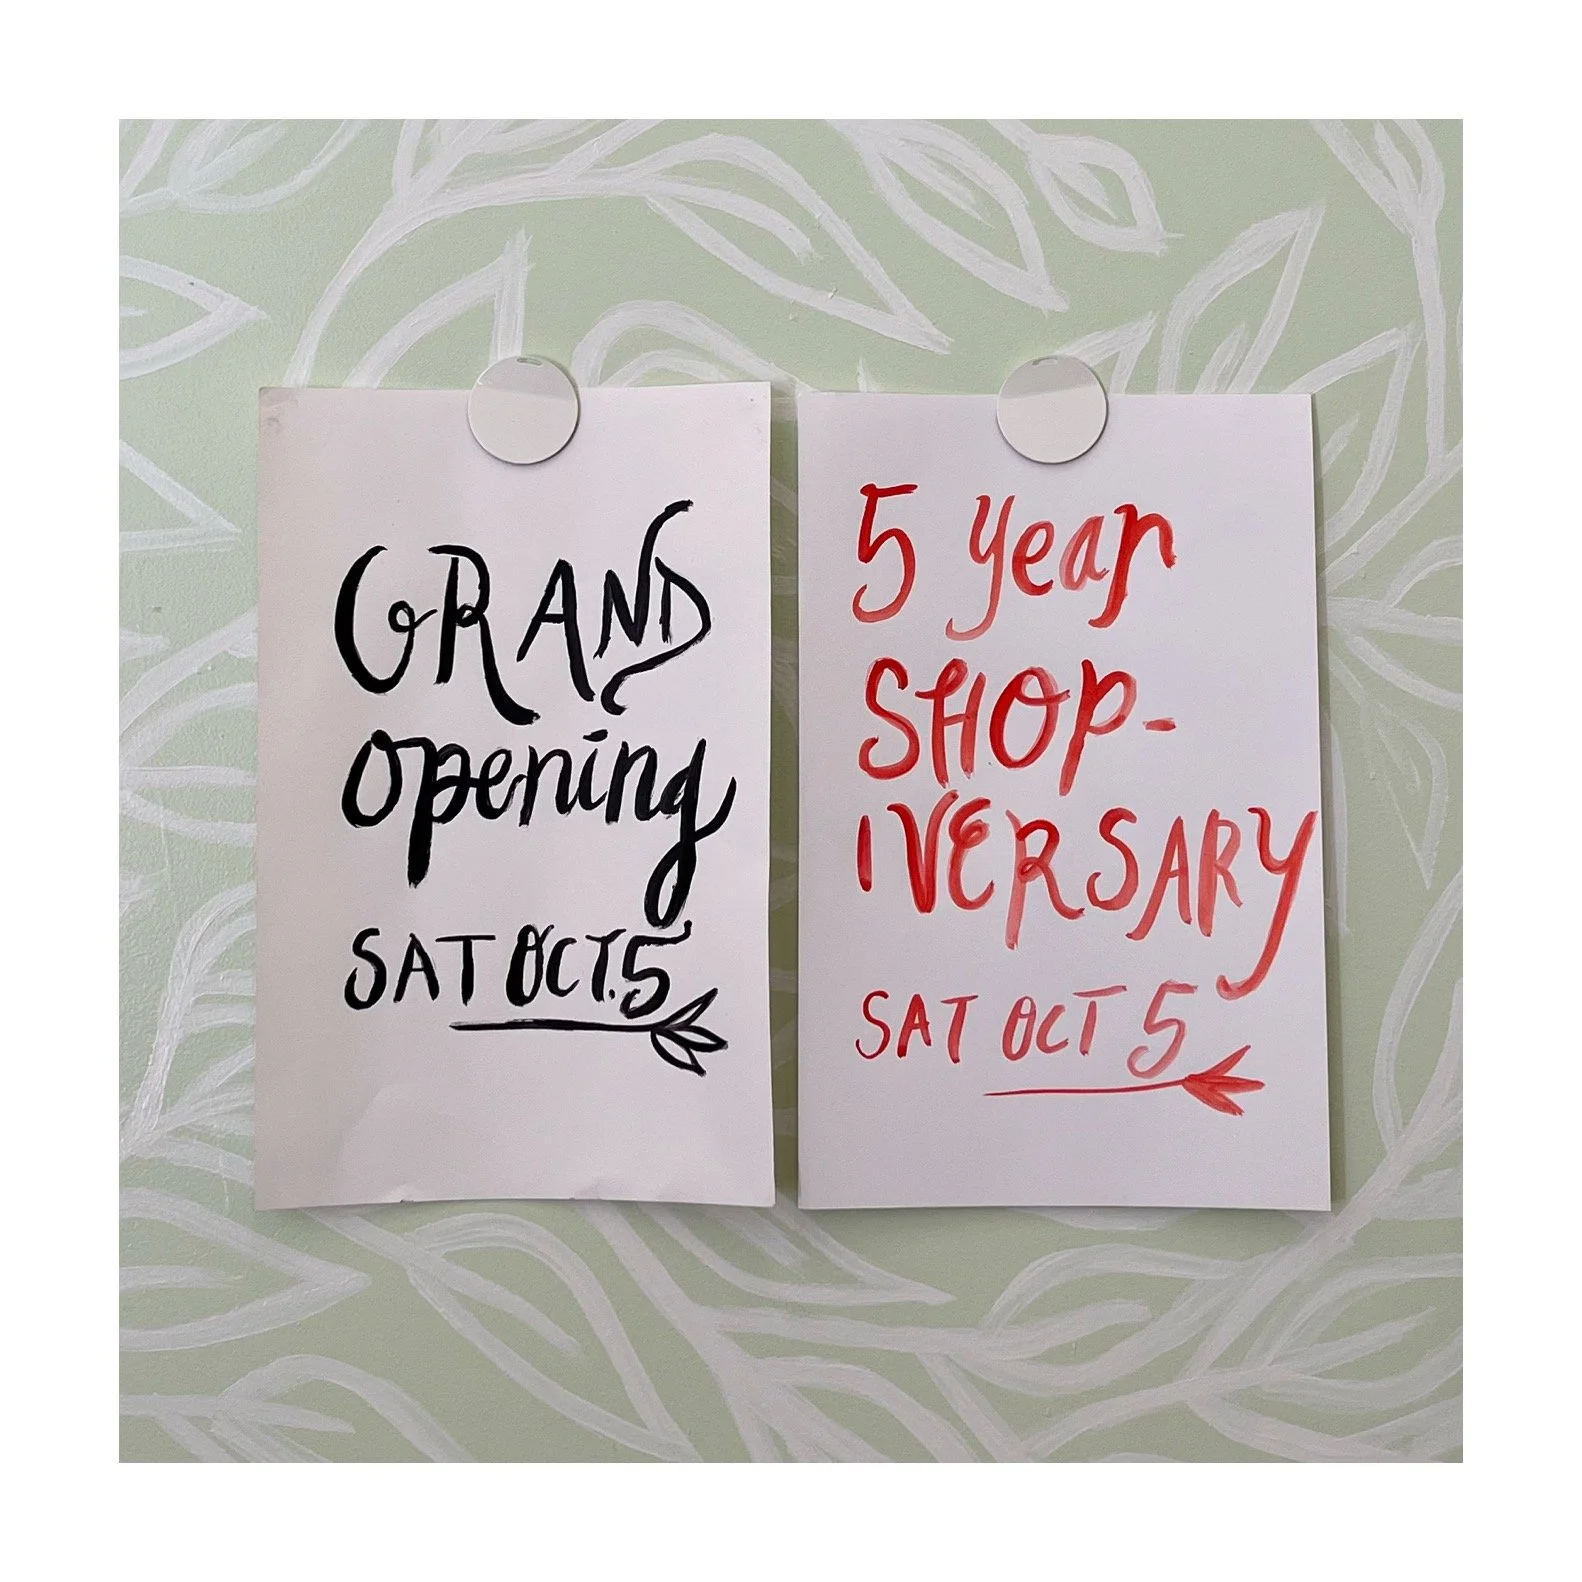 GRAND
opening
SAT OCT. 5
5 year
SHOP-
IVERSARY
SAT OCT 5